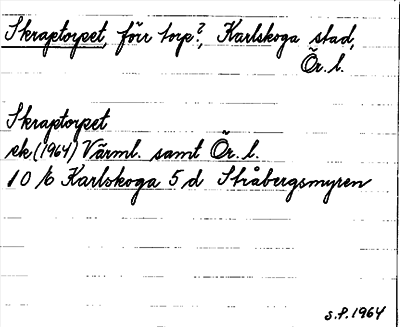 Skraptorpet, förr torp?, Karlskoga stad,
Ör. l.
Skraptorpet
ek (1964) Värml. samt Ör. l.
10 f6 Karlskoga 5 d Stråbergsmyren
S.P. 1964